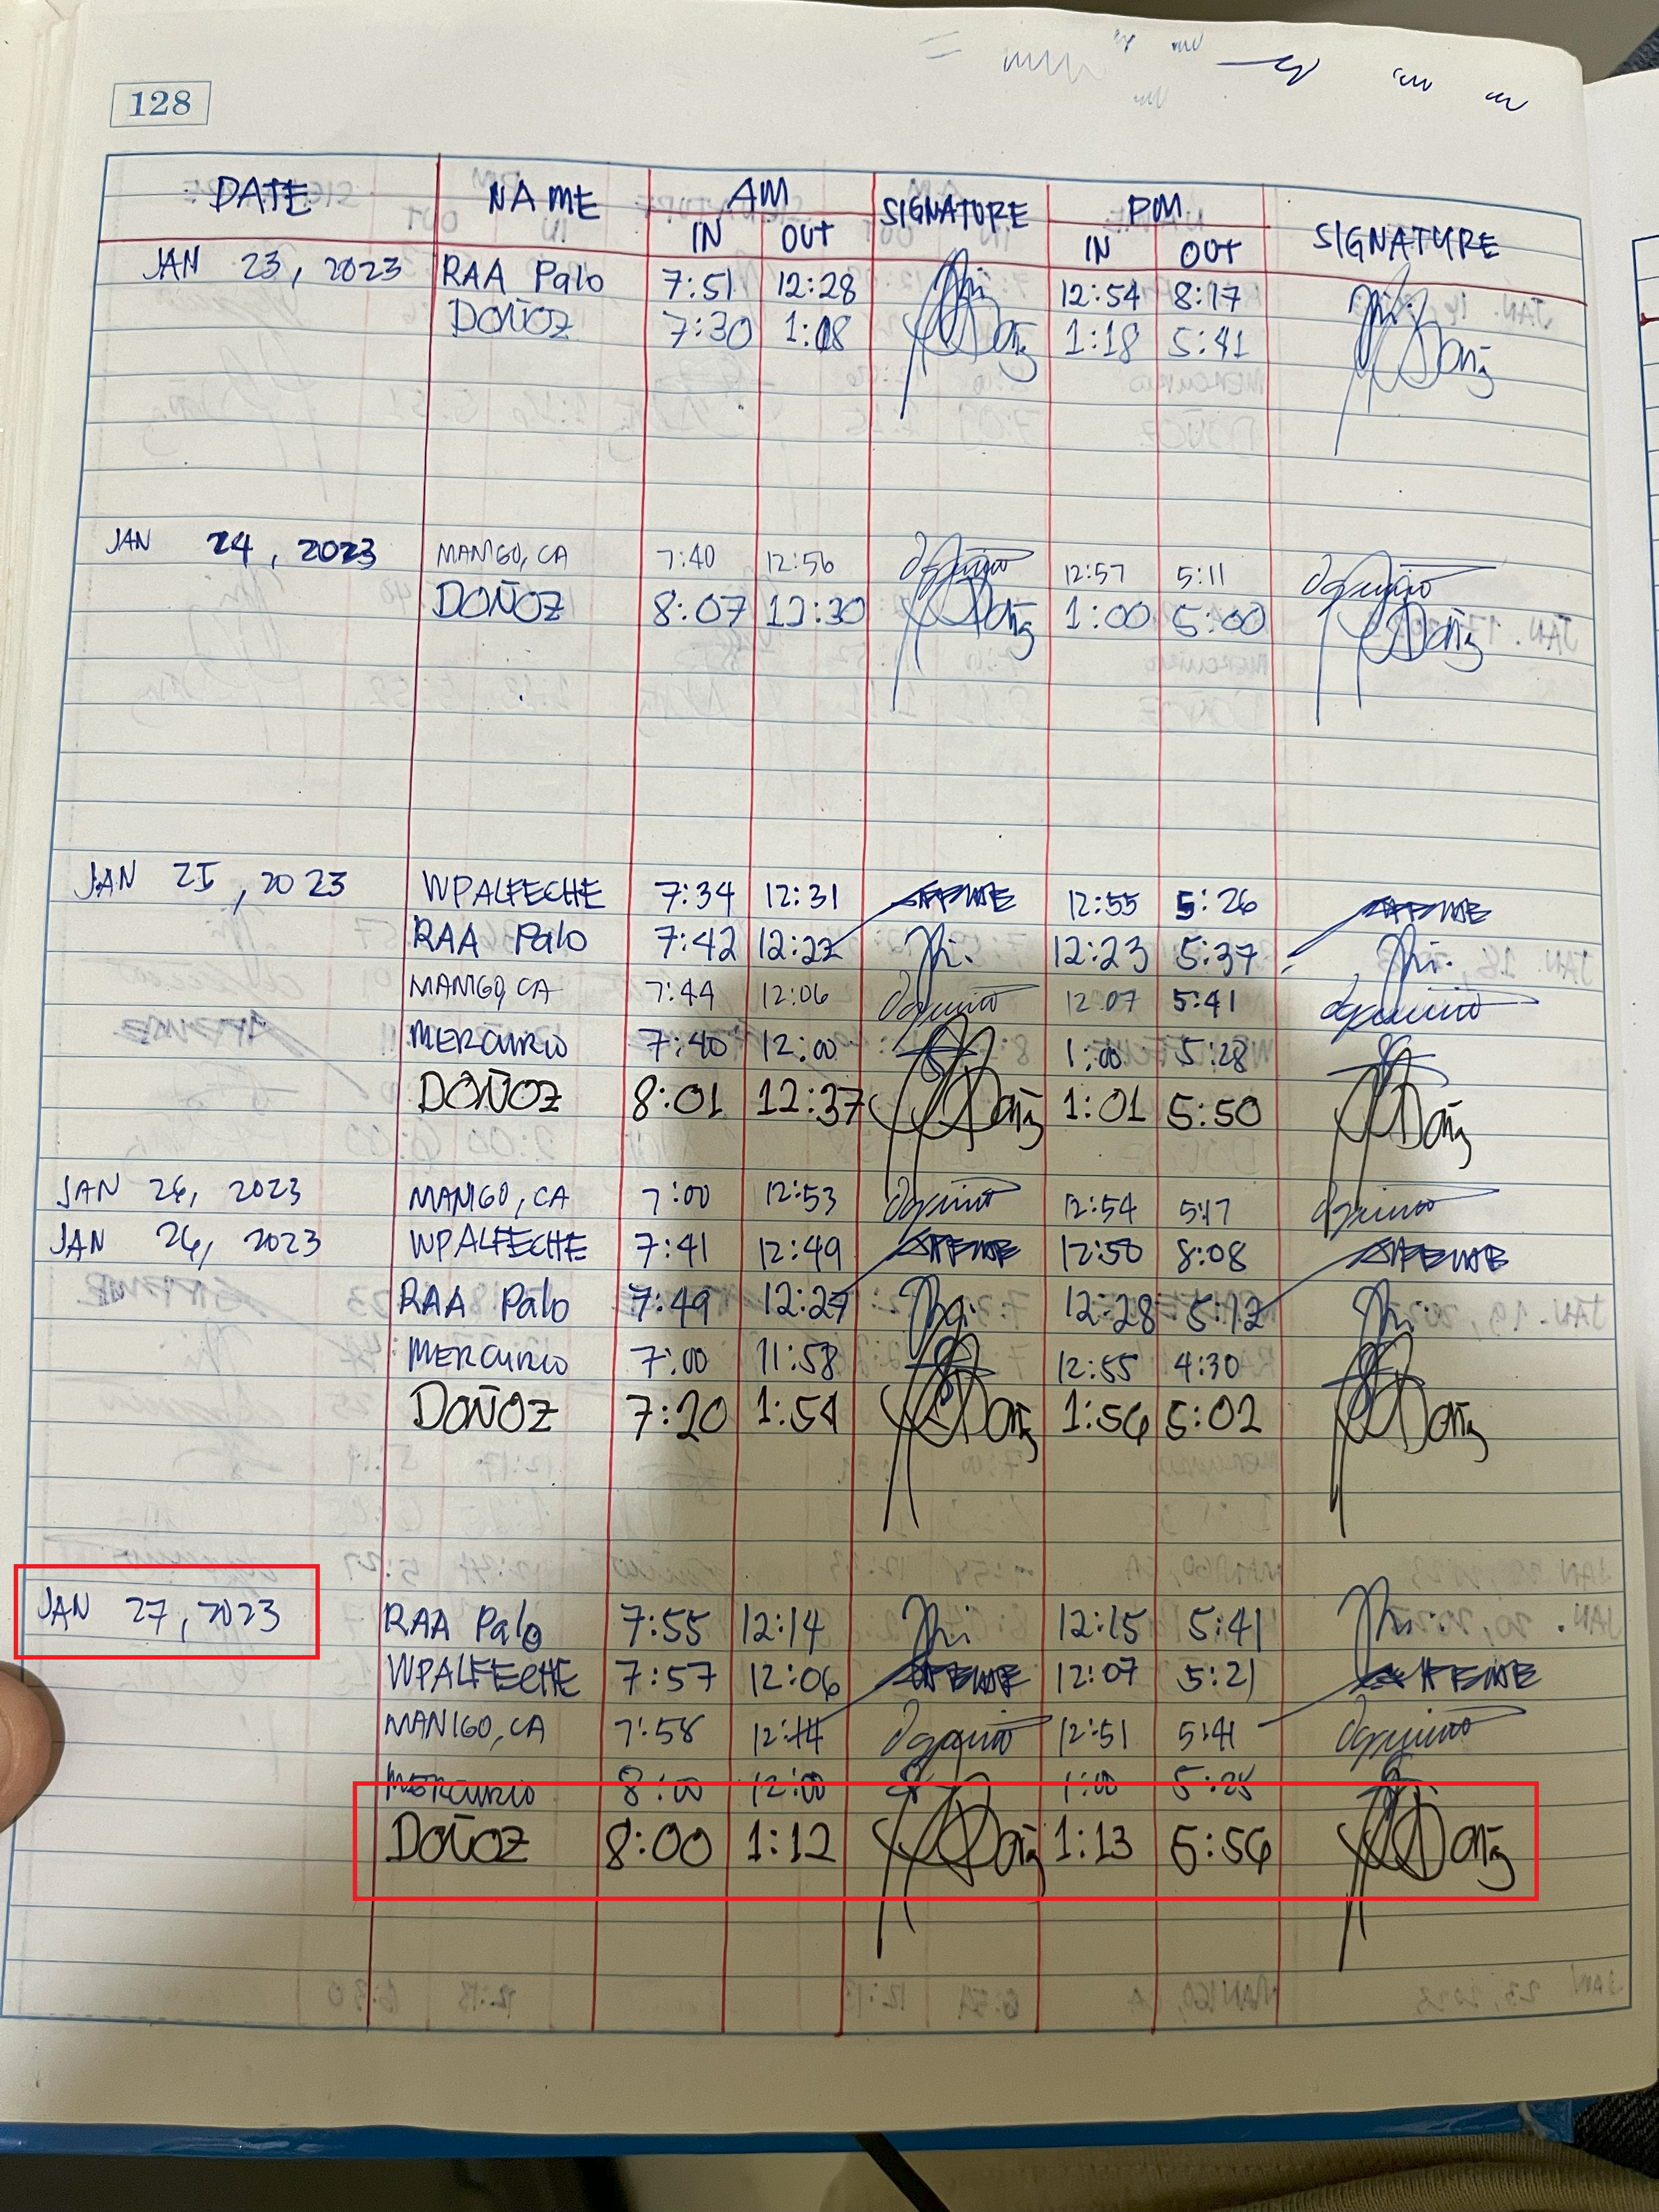 128
DATE NAME AM SIGNATURE PM SIGNATURE
IN OUT IN OUT
JAN 23, 2023 RAA Palo 7:51 12:28 12:54 8:17
DOÑOZ 7:30 1:18 1:18 5:41
JAN 24, 2023 MANIGO, CA 7:40 12:56 12:57 5:11
DOÑOZ 8:07 12:30 1:00 5:00
JAN 25, 2023 WPALFECHE 7:34 12:31 12:55 5:26
RAA Palo 7:42 12:22 12:23 5:37
MANIGO, CA 7:44 12:06 12:07 5:41
MERCURIO 7:40 12:00 1:00 5:28
DOÑOZ 8:01 12:37 1:01 5:50
JAN 26, 2023 MANIGO, CA 7:00 12:53 12:54 5:17
JAN 26, 2023 WPALFECHE 7:41 12:49 12:50 8:08
RAA Palo 7:49 12:27 12:28 5:12
MERCURIO 7:00 11:58 12:55 4:30
DOÑOZ 7:20 1:54 1:56 5:02
JAN 27, 2023 RAA Palo 7:55 12:14 12:15 5:41
WPALFECHE 7:57 12:06 12:07 5:21
MANIGO, CA 7:58 12:51 5:41
MERCURIO 8:00 12:00 1:00 5:25
DOÑOZ 8:00 1:12 1:13 5:56